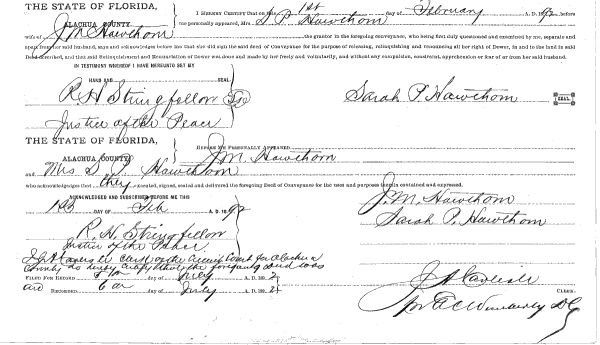 THE STATE OF FLORIDA,
ALACHUA COUNTY.
I HEREBY CERTIFY that on this 1st day of February A. D. 1892, before
me personally appeared, Mrs. S. P. Hawthorn
wife of J. M. Hawthorn the grantor in the foregoing conveyance, who being first duly questioned and examined by me, separate and
apart from her said husband, says and acknowledges before me that she did sign the said deed of Conveyance for the purpose of releasing, relinquishing and renouncing all her right of Dower, in and to the land in said
Deed described, and that said Relinquishment and Renunciation of Dower was done and made by her freely and voluntarily, and without any compulsion, constraint, apprehension or fear of or from her said husband.
IN TESTIMONY WHEREOF I HAVE HEREUNTO SET MY
HAND AND SEAL
R. H. Stringfellow Sarah P. Hawthorn SEAL.
Justice of the Peace
THE STATE OF FLORIDA,
ALACHUA COUNTY.
BEFORE ME PERSONALLY APPEARED J. M. Hawthorn
and Mrs S. P. Hawthorn
who acknowledges that they executed, signed, sealed and delivered the foregoing Deed of Conveyance for the uses and purposes therein contained and expressed.
ACKNOWLEDGED AND SUBSCRIBED BEFORE ME THIS
1st DAY OF Feb A. D. 1892
J. M. Hawthorn
Sarah P. Hawthorn
R. H. Stringfellow
Justice of the Peace.
Clerk of the Circuit Court for Alachua
County do hereby certify that the foregoing deed was
FILED FOR RECORD day of July A. D. 1892
and RECORDED 6 day of July A. D. 1892
CLERK.
Wimberly D C